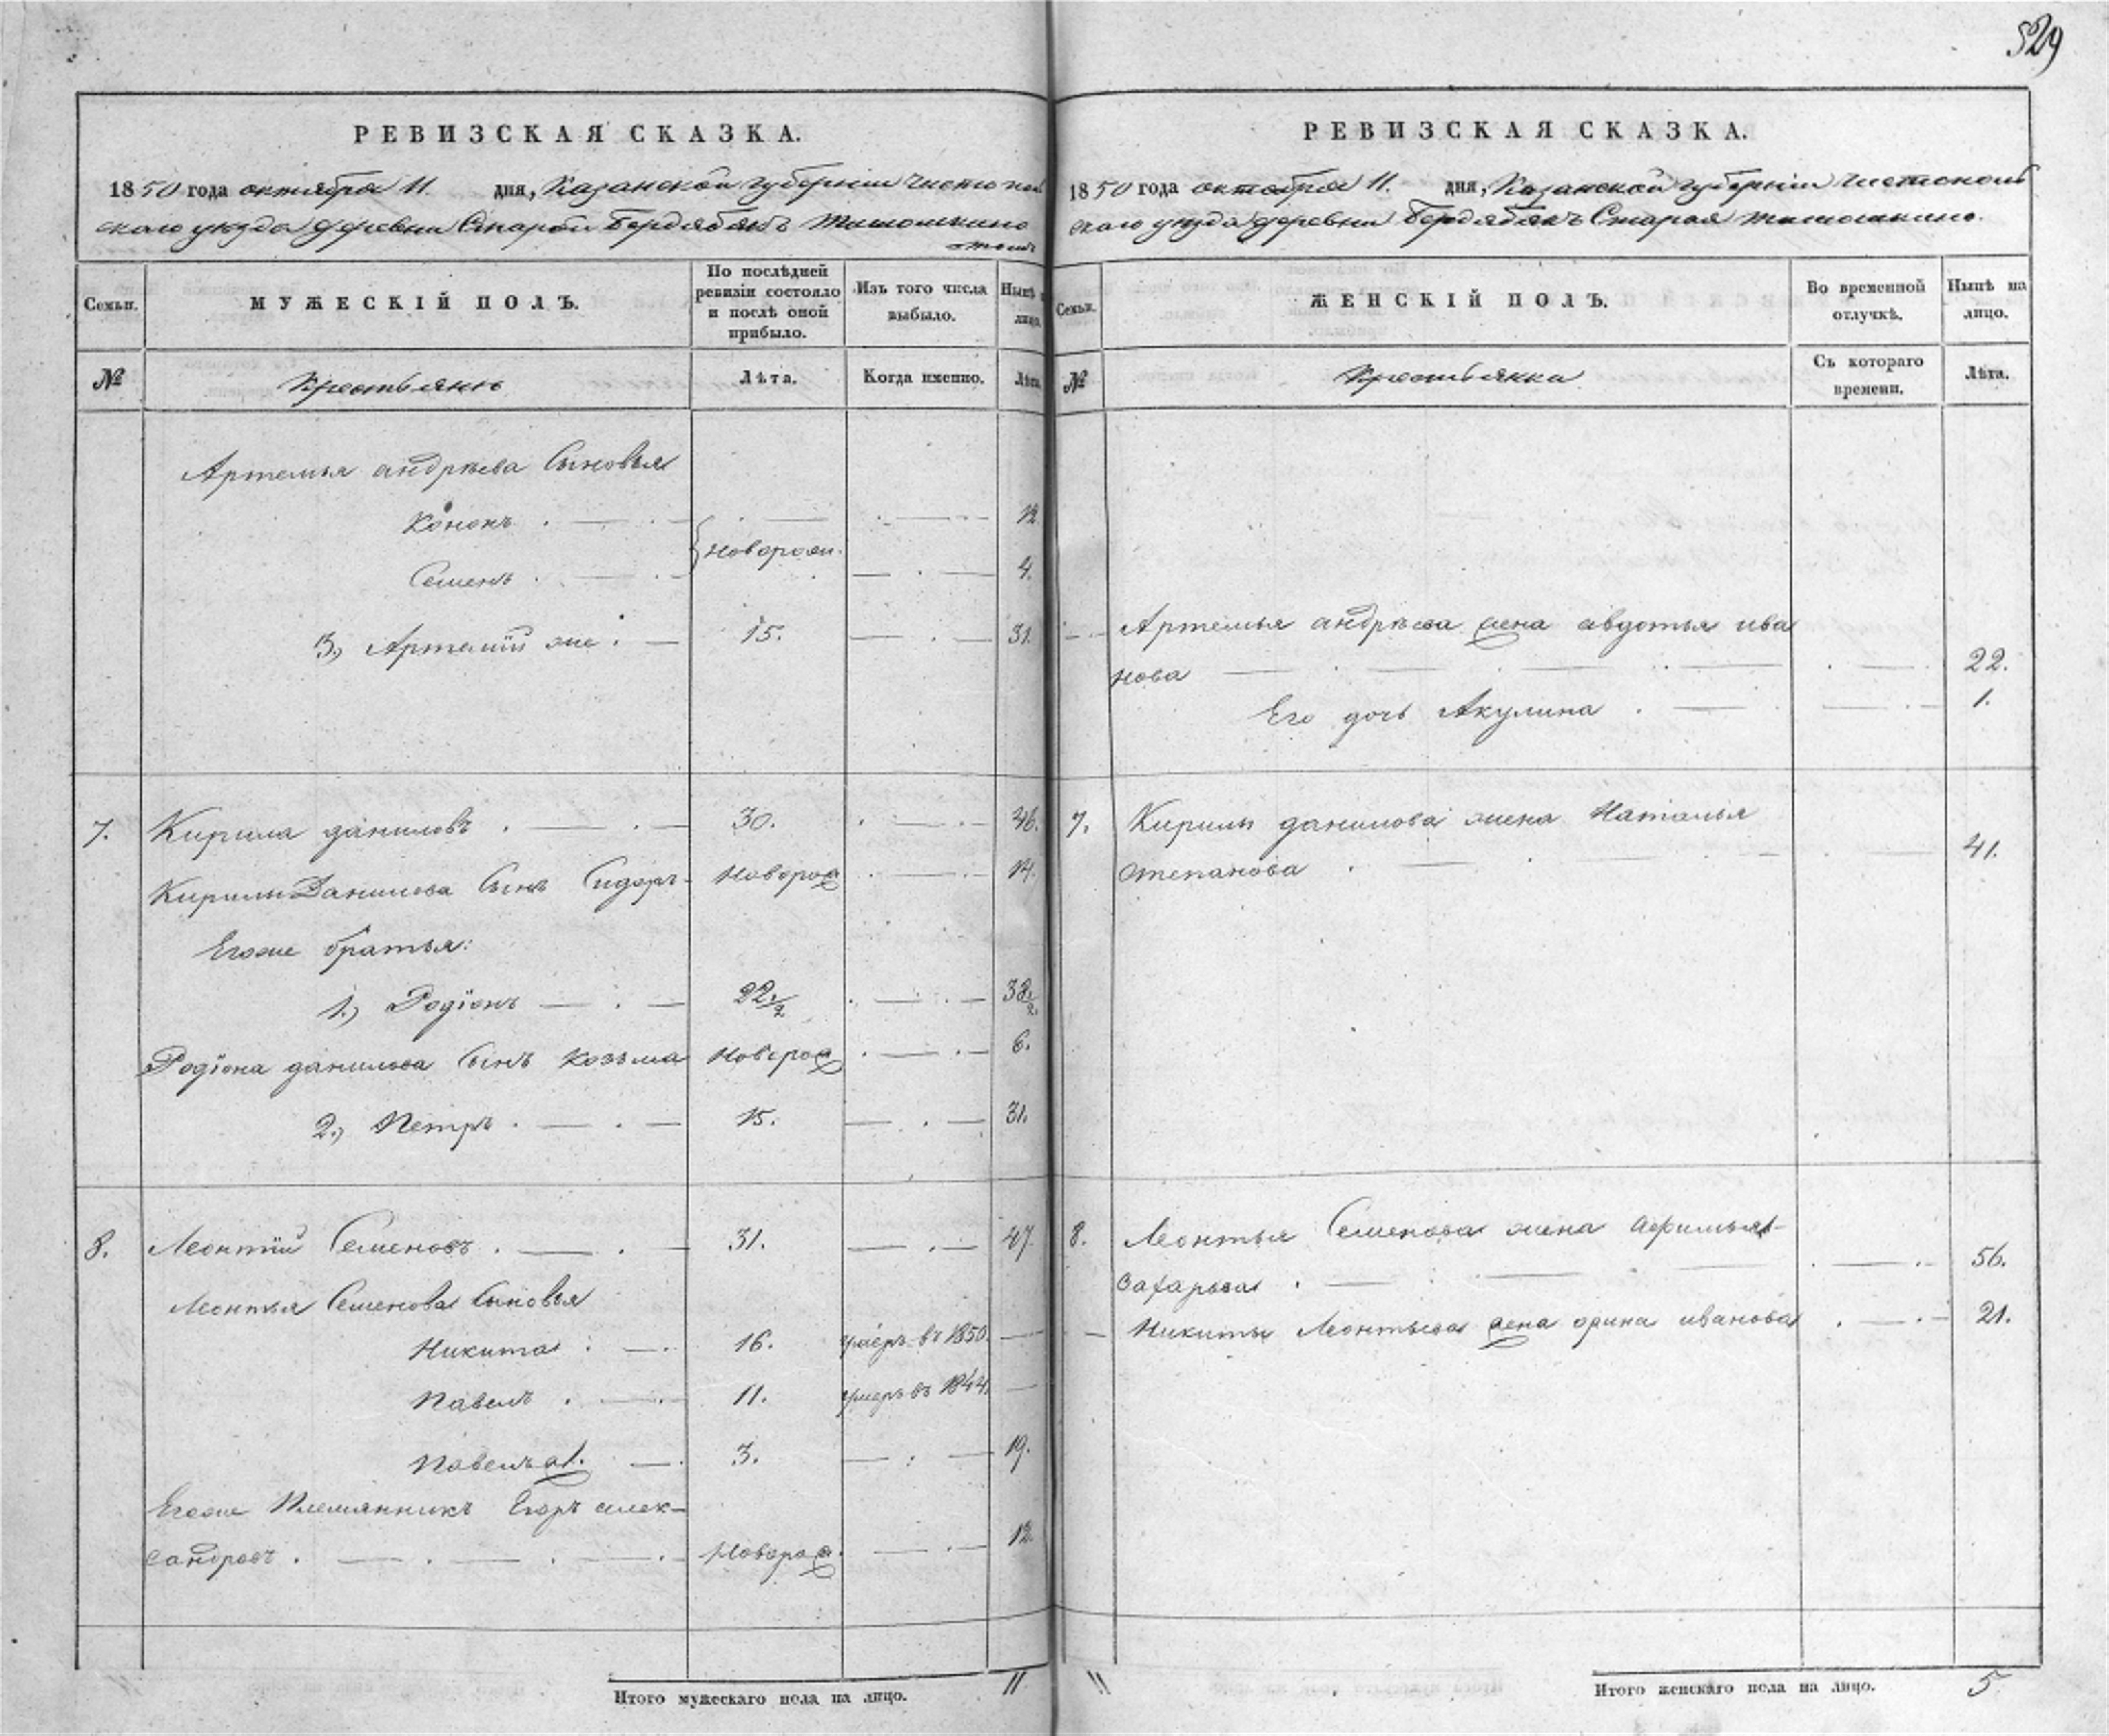 529
РЕВИЗСКАЯ СКАЗКА.
1850 года октября 11. дня, Казанской губернiи Чистополь
скаго уѣзда деревни Старой Бердябякъ Тимошкино
тожъ
Семьи.
МУЖЕСКІЙ ПОЛЪ.
По послѣдней ревизіи состояло и послѣ оной прибыло.
Изъ того числа выбыло.
Нынѣ на лицо.
№
Крестьянъ
Лѣта.
Когда именно.
Лѣта.
Артемья андрѣева Сыновья
Кононъ 12.
новорож.
Семенъ 4.
3., Артемiй же 15. 31.
7. Кирила даниловъ 30. 46.
Кирилы Данилова Сынъ Сидоръ новорож 14.
Егоже братья:
1., Родiонъ 22 1/2 38 1/2
Родiона данилова Сынъ Козьма новорож 6.
2., Петръ 15. 31.
8. Леонтiй Семеновъ 31. 47.
Леонтья Семенова Сыновья
Никита 16. умеръ въ 1850.
Павелъ 11. умеръ въ 1844.
Павелъ 3. 19.
Егоже Племянникъ Егоръ алек-
сандровъ новорож. 12.
Итого мужескаго пола на лицо. 11
РЕВИЗСКАЯ СКАЗКА.
1850 года октября 11. дня, Казанской губернiи Чистополь
скаго уѣзда деревни Бердябякъ Старая тимошкино.
Семьи.
ЖЕНСКІЙ ПОЛЪ.
Во временной отлучкѣ.
Нынѣ на лицо.
№
Крестьянки
Съ котораго времени.
Лѣта.
Артемья андрѣева жена авдотья ива
нова 22.
Его дочь Акулина 1.
7. Кирилы данилова жена Наталья
Степанова 41.
8. Леонтья Семенова жена афимья
Захарьва 56.
Никиты Леонтьева жена орина иванова 21.
11
Итого женскаго пола на лицо. 5